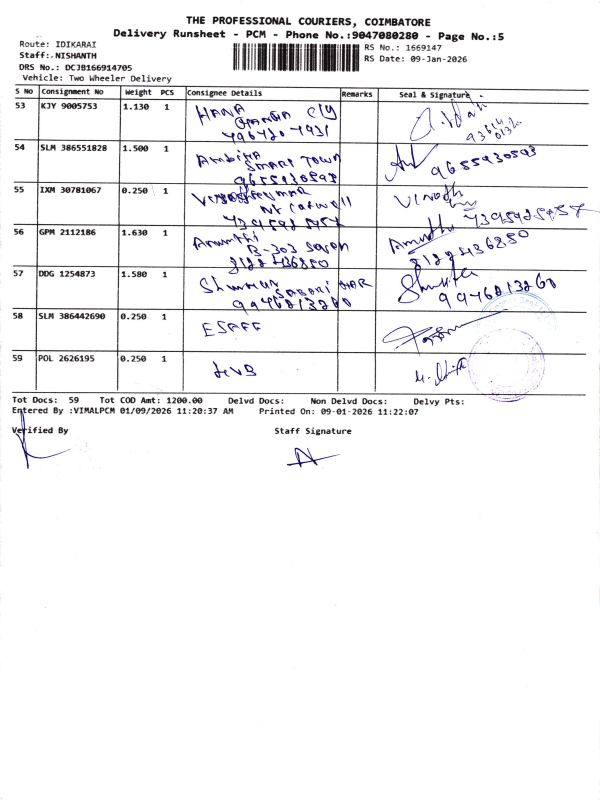 THE PROFESSIONAL COURIERS, COIMBATORE
Delivery Runsheet - PCM - Phone No.:9047080280 - Page No.:5
Route: IDIKARAI
Staff: NISHANTH
DRS No.: DCJB166914705
Vehicle: Two Wheeler Delivery
RS No.: 1669147
RS Date: 09-Jan-2026
S No Consignment No Weight PCS Consignee Details Remarks Seal & Signature
53 KJY 9005753 1.130 1 HANA
54 SLM 386551828 1.500 1 Ambika
SMART TOWN
9655930593 9655930593
55 IXM 30781067 0.250 1 Vinoth
7395925957
56 GPM 2112186 1.630 1 Amuthi Amuthi
B-303
8122436850 8122436850
57 DDG 1254873 1.580 1
9946213260 9946213260
58 SLM 386442690 0.250 1 ESAFF
59 POL 2626195 0.250 1 LVB
Tot Docs: 59 Tot COD Amt: 1200.00 Delvd Docs: Non Delvd Docs: Delvy Pts:
Entered By :VIMALPCM 01/09/2026 11:20:37 AM Printed On: 09-01-2026 11:22:07
Verified By Staff Signature